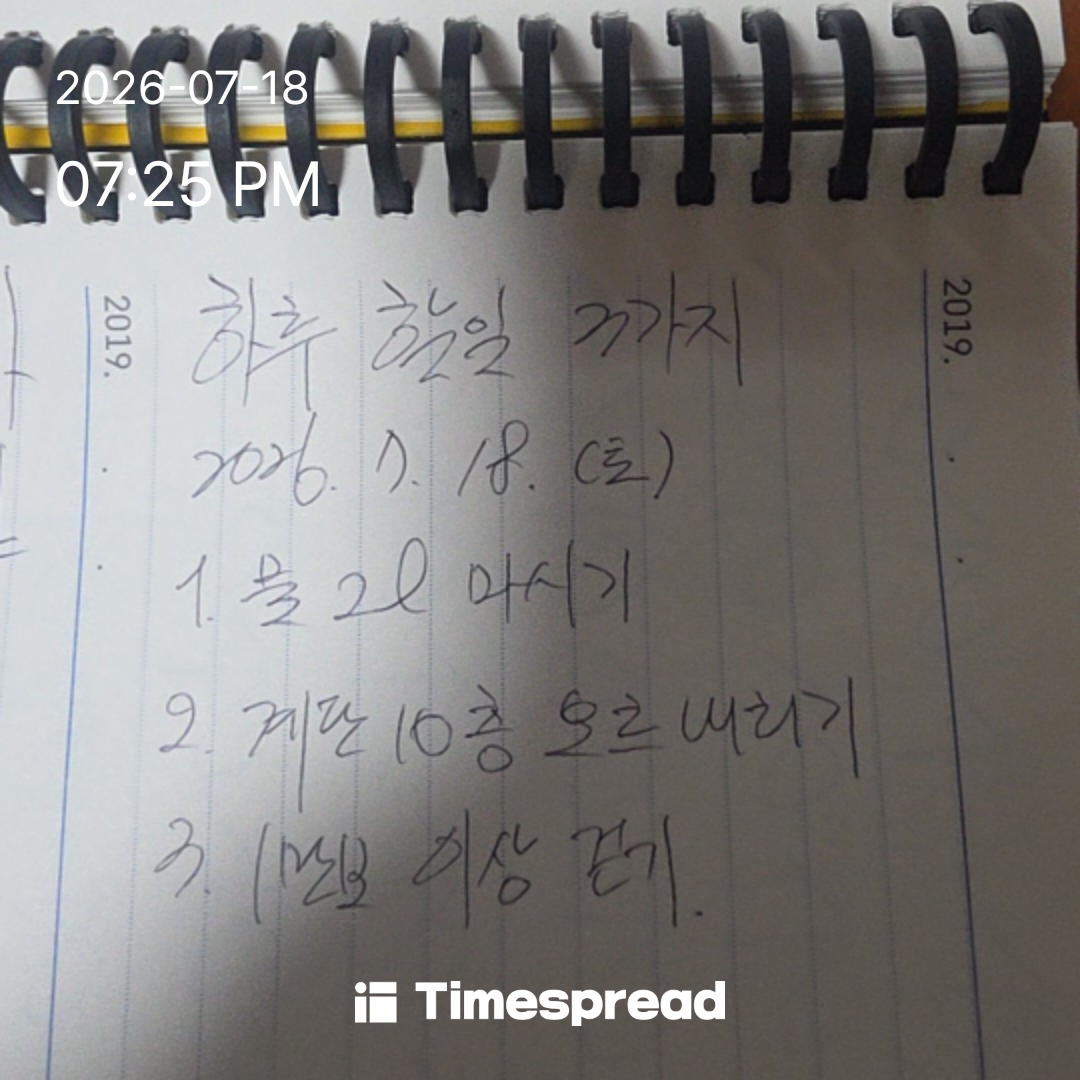 2026-07-18
07:25 PM
2019.
2019.
하루 할일 3가지
2026. 7. 18. (토)
1. 물 2l 마시기
2. 계단 10층 오르내리기
3. 1만보 이상 걷기.
Timespread